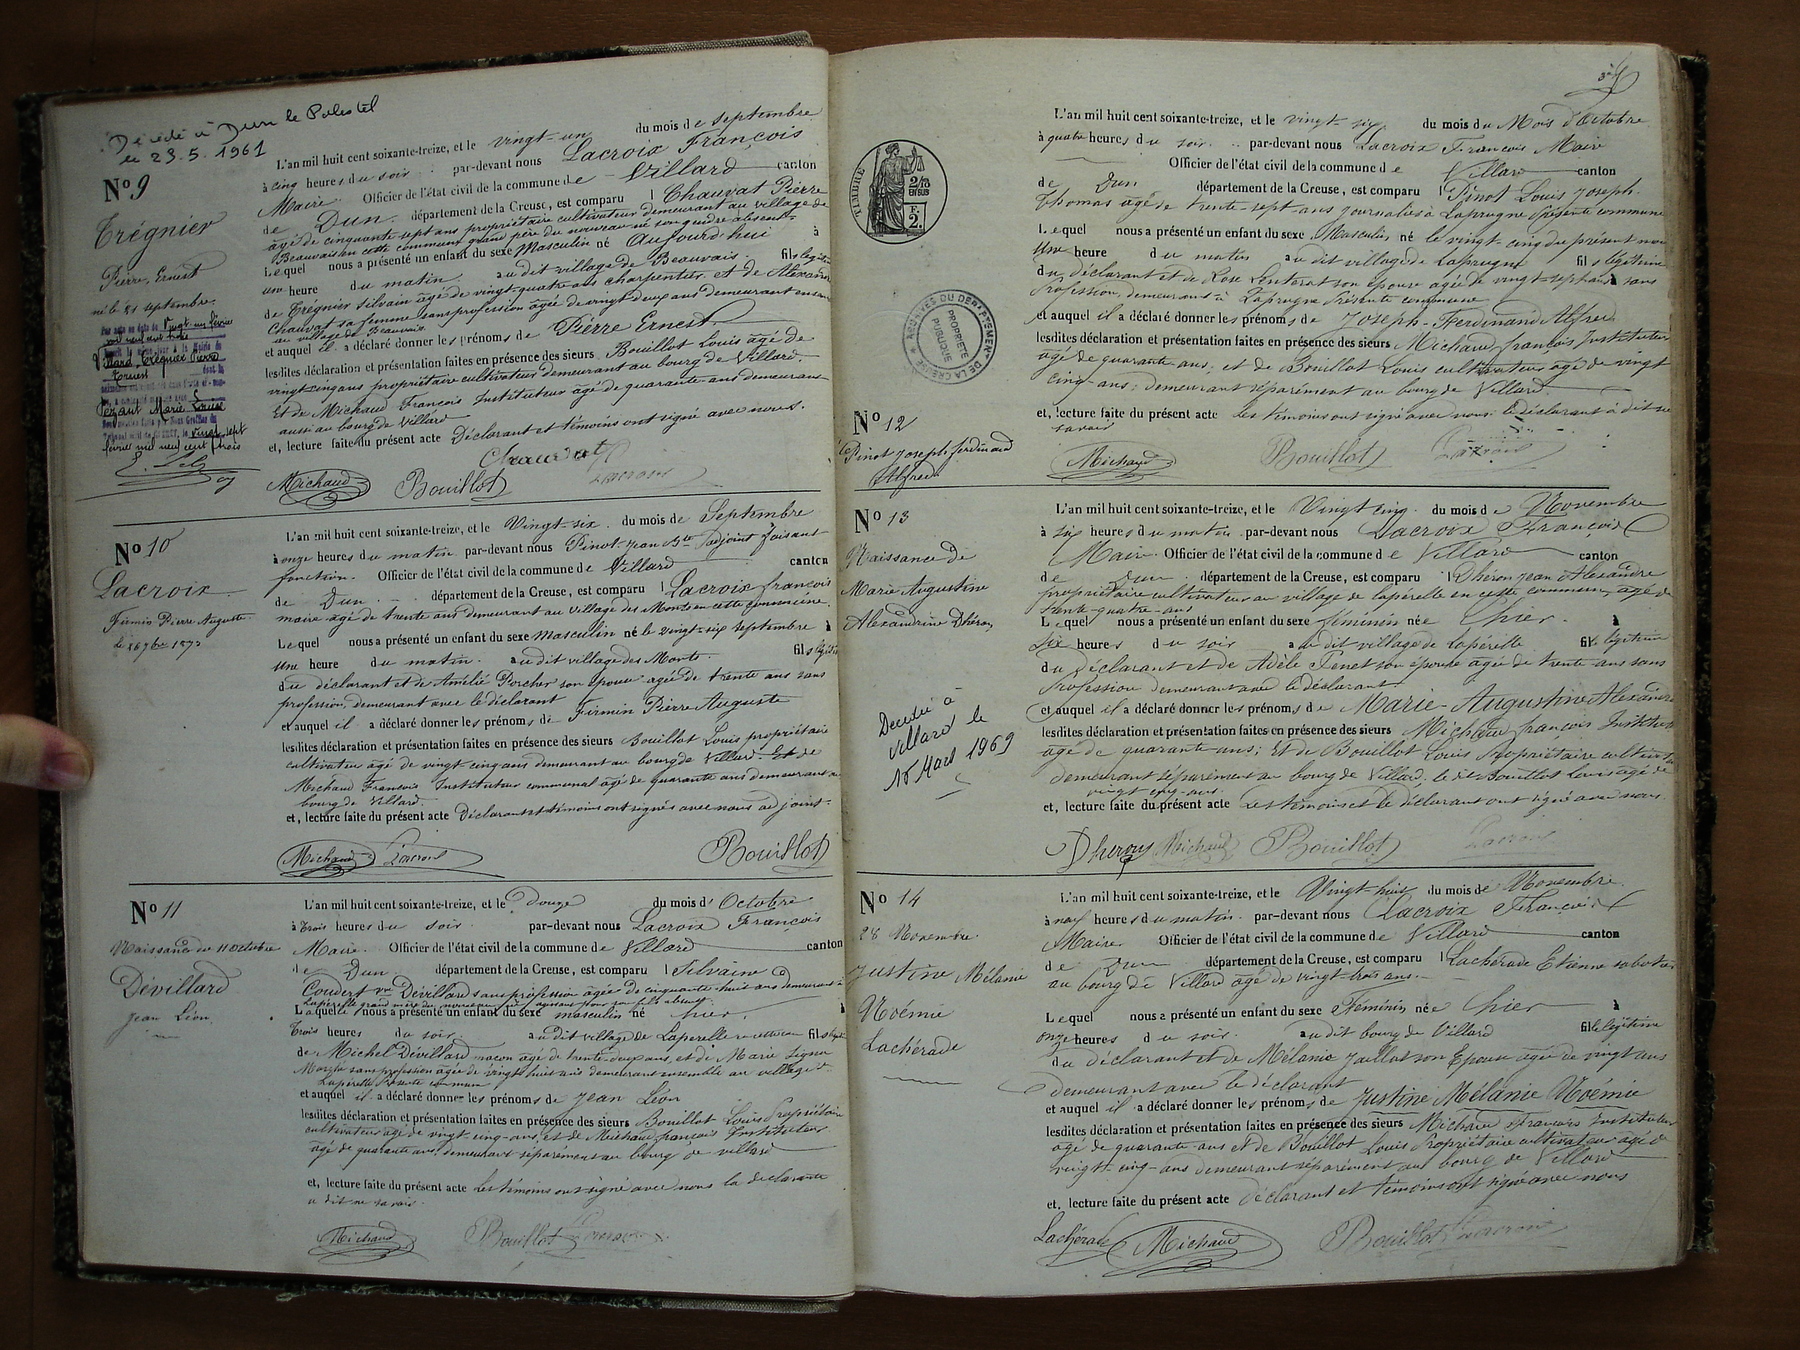 Décédé à Dun le Palestel
le 23.5.1961
N° 9
Trégnier
Pierre, Ernest
né le 21 septembre
Villard, Trégnier Pierre
Ernest
Marie Louise
février mil neuf cent trois
L'an mil huit cent soixante-treize, et le vingt-un du mois de Septembre
à cinq heures du soir par-devant nous Lacroix François
Maire Officier de l'état civil de la commune de Villard canton
de Dun département de la Creuse, est comparu Chauvat Pierre
âgé de cinquante sept ans propriétaire cultivateur demeurant au village de
Beauvais en cette commune grand père du nouveau né son gendre absent
Lequel nous a présenté un enfant du sexe Masculin né Aujourd'hui à
une heure du matin au dit village de Beauvais fils légitime
de Trégnier Silvain âgé de vingt-quatre ans charpentier et de Alexandrine
Chauvat sa femme sans profession âgée de vingt deux ans demeurant
au village de Beauvais
et auquel il a déclaré donner les prénoms de Pierre Ernest
lesdites déclaration et présentation faites en présence des sieurs Bouillot Louis âgé de
vingt cinq ans propriétaire cultivateur demeurant au bourg de Villard.
Et de Michaud François Instituteur âgé de quarante ans demeurant
aussi au bourg de Villard
et, lecture faite du présent acte Déclarant et témoins ont signé avec nous.
Chauvat
Michaud Bouillot Lacroix
N° 10
Lacroix
Firmin Pierre Auguste
le 26 7bre 1873
L'an mil huit cent soixante-treize, et le Vingt-six du mois de Septembre
à onze heures du matin par-devant nous Pinot Jean Bte adjoint faisant
fonction. Officier de l'état civil de la commune de Villard canton
de Dun département de la Creuse, est comparu Lacroix françois
maire âgé de trente ans demeurant au village des Monts en cette commune
Lequel nous a présenté un enfant du sexe Masculin né le vingt-six septembre à
une heure du matin au dit village des Monts fils légitime
du déclarant et de Amélie Porcher son épouse âgée de trente ans sans
profession, demeurant avec le déclarant
et auquel il a déclaré donner les prénoms de Firmin Pierre Auguste
lesdites déclaration et présentation faites en présence des sieurs Bouillot Louis propriétaire
cultivateur âgé de vingt-cinq ans demeurant au bourg de Villard. Et de
Michaud François Instituteur communal âgé de quarante ans demeurant au
bourg de Villard
et, lecture faite du présent acte Déclarant et témoins ont signés avec nous adjoint.
Michaud Lacroix Bouillot
N° 11
Naissance du 11 Octobre
Dévillard
Jean Léon
L'an mil huit cent soixante-treize, et le Douze du mois d'Octobre
à trois heures du soir par-devant nous Lacroix François
Maire Officier de l'état civil de la commune de Villard canton
de Dun département de la Creuse, est comparu Silvaine
Coudert ve Dévillard sans profession âgée de cinquante huit ans demeurant à
Laperelle grand'mère du nouveau né agissant pour son fils absent
Laquelle nous a présenté un enfant du sexe masculin né hier à
trois heures du soir au dit village de Laperelle fils légitime
de Michel Dévillard maçon âgé de trente-deux ans, et de Marie
sans profession âgée de vingt huit ans demeurant ensemble au village de
Laperelle présente commune
et auquel il a déclaré donner les prénoms de Jean Léon
lesdites déclaration et présentation faites en présence des sieurs Bouillot Louis Propriétaire
cultivateur âgé de vingt-cinq ans, et de Michaud françois Instituteur
âgé de quarante ans demeurant séparément au bourg de villard
et, lecture faite du présent acte les témoins ont signé avec nous la déclarante
a dit ne savoir.
Michaud Bouillot Lacroix
TIMBRE
2/10
EN SUS
F.
2.
ARCHIVES DU DÉPARTEMENT DE LA CREUSE
PROPRIÉTÉ
PUBLIQUE
N° 12
Pinot Joseph ferdinand
Alfred
L'an mil huit cent soixante-treize, et le vingt-six du mois du Mois d'Octobre
à quatre heures du soir par-devant nous Lacroix François Maire
Officier de l'état civil de la commune de Villard canton
de Dun département de la Creuse, est comparu Pinot Louis Joseph
Thomas âgé de trente sept ans journalier à Laprugne présente commune
Lequel nous a présenté un enfant du sexe Masculin né le vingt cinq du présent mois à
Une heure du matin au dit village de Laprugne fils légitime
du déclarant et de Rose son épouse âgée de vingt-sept ans sans
profession, demeurant à Laprugne présente commune
et auquel il a déclaré donner les prénoms de Joseph-Ferdinand Alfred
lesdites déclaration et présentation faites en présence des sieurs Michaud françois Instituteur
âgé de quarante ans; et de Bouillot Louis cultivateur âgé de vingt
cinq ans; demeurant séparément au bourg de Villard
et, lecture faite du présent acte les témoins ont signé avec nous le déclarant a dit ne
savoir
Michaud Bouillot Lacroix
N° 13
Naissance de
Marie Augustine
Alexandrine Dhéron
Décédée à
Villard le
15 Mars 1969
L'an mil huit cent soixante-treize, et le Vingt cinq du mois de Novembre
à six heures du matin par-devant nous Lacroix François
Maire Officier de l'état civil de la commune de Villard canton
de Dun département de la Creuse, est comparu Dhéron Jean Alexandre
propriétaire cultivateur au village de Lapérelle en cette commune, âgé de
trente-quatre-ans
Lequel nous a présenté un enfant du sexe féminin née hier à
six heures du soir au dit village de Lapérelle fille légitime
du déclarant et de Adèle Penet son épouse âgée de trente ans sans
profession demeurant avec le déclarant
et auquel il a déclaré donner les prénoms de Marie-Augustine Alexandrine
lesdites déclaration et présentation faites en présence des sieurs Michaud françois Instituteur
âgé de quarante ans; Et de Bouillot Louis Propriétaire cultivateur
demeurant séparément au bourg de Villard. le dit Bouillot Louis âgé de
vingt cinq ans
et, lecture faite du présent acte Les témoins et le déclarant ont signé avec nous.
Dheron Michaud Bouillot Lacroix
N° 14
28 Novembre
Justine Mélanie
Noémie
Lachérade
L'an mil huit cent soixante-treize, et le Vingt-huit du mois de Novembre
à neuf heures du matin par-devant nous Lacroix François
Maire Officier de l'état civil de la commune de Villard canton
de Dun département de la Creuse, est comparu Lachérade Etienne sabotier
au bourg de Villard âgé de vingt-trois ans
Lequel nous a présenté un enfant du sexe Féminin née hier à
onze heures du soir au dit bourg de Villard fille légitime
du déclarant et de Mélanie Jaillot son Epouse âgée de vingt ans
demeurant avec le déclarant
et auquel il a déclaré donner les prénoms de Justine Mélanie Noémie
lesdites déclaration et présentation faites en présence des sieurs Michaud François Instituteur
âgé de quarante ans et de Bouillot Louis Propriétaire cultivateur âgé de
vingt-cinq-ans demeurant séparément au bourg de Villard
et, lecture faite du présent acte déclarant et témoins ont signé avec nous
Lachérade Michaud Bouillot Lacroix